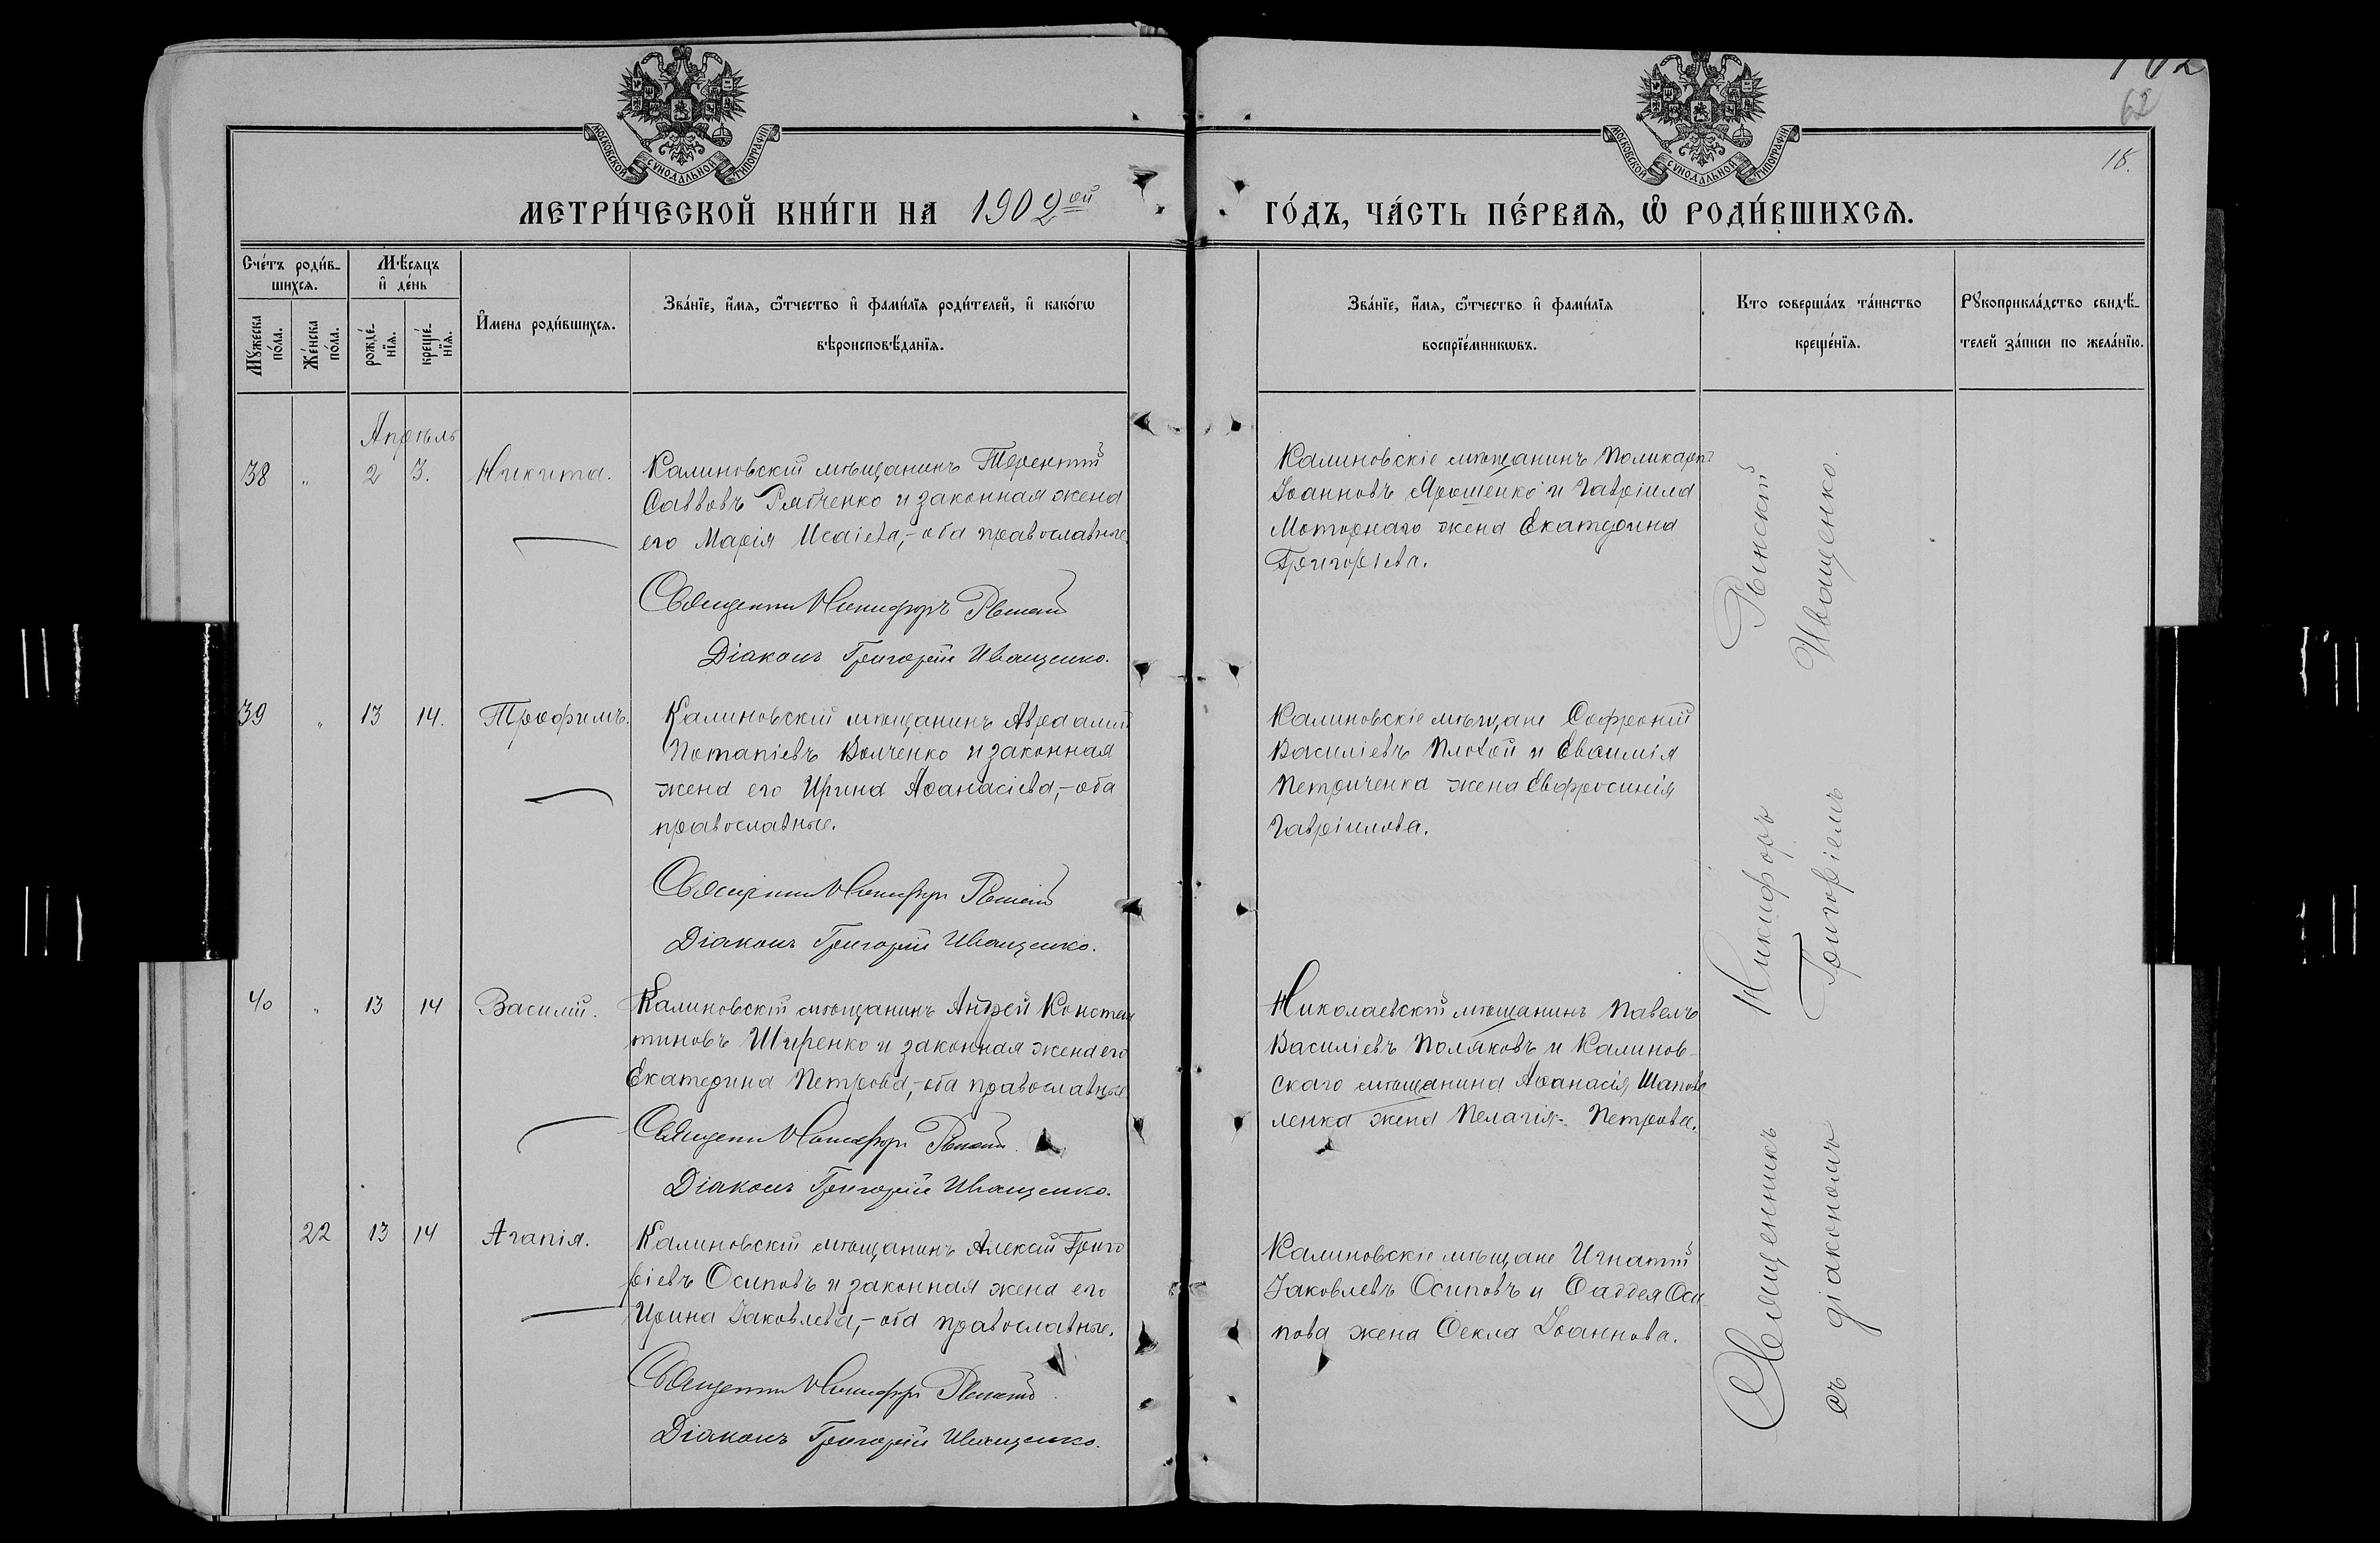 102
62
18.
МОСКОВСКОЙ СѴНОДАЛЬНОЙ ТИПОГРАФІИ
МОСКОВСКОЙ СѴНОДАЛЬНОЙ ТИПОГРАФІИ
МЕТРИ́ЧЕСКОЙ КНИ́ГИ НА 1902ой ГО́ДЪ, ЧА́СТЬ ПЕ́РВАЯ, Ѡ҆ РОДИ́ВШИХСЯ.
Сче́тъ роди́в-
шихся.
Мꙋ́жеска
по́ла.
Же́нска
по́ла.
Мѣ́сяцъ
и҆ де́нь
рожде́-
нїя.
креще́-
нїя.
И҆мена роди́вшихся.
Зва́нїе, и҆́мя, ѻ҆́тчество и҆ фами́лїя роди́телей, и҆ како́гѡ
вѣроисповѣ́данїя.
Зва́нїе, и҆́мя, ѻ҆́тчество и҆ фами́лїя
воспрїе́мникѡвъ.
Кто соверша́лъ та́инство
креще́нїя.
Рꙋкоприкла́дство свидѣ́-
телей за́писи по жела́нїю.
Апрѣль
38 " 2 3. Никита.
Калиновскій мѣщанинъ Терентій
Саввовъ Рябченко и законная жена
его Марія Исаіева,- оба православные.
Священникъ Никифоръ
Діаконъ Григорій Иващенко.
Калиновскіе мѣщанинъ Поликарпъ
Іоанновъ Ярошенко и Гавріила
Моторнаго жена Екатерина
Григоріева.
39 " 13 14. Трофимъ.
Калиновскій мѣщанинъ Авраамій
Потапіевъ Волченко и законная
жена его Ирина Аѳанасіева,- оба
православные.
Священникъ Никифоръ
Діаконъ Григорій Иващенко.
Калиновскіе мѣщане Софроній
Василіевъ Плохой и Евѳимія
Петриченка жена Евфросинія
Гавріилова.
40 " 13 14 Василій.
Калиновскій мѣщанинъ Андрей Констан
тиновъ Ширенко и законная жена его
Екатерина Петрова,- оба православные
Священникъ Никифоръ
Діаконъ Григорій Иващенко.
Николаевскій мѣщанинъ Павелъ
Василіевъ Поляковъ и Калинов-
скаго мѣщанина Аѳанасія Шапова
ленка жена Пелагія Петрова.
22 13 14 Агапія.
Калиновскій мѣщанинъ Алексій Григо
ріевъ Осиповъ и законная жена его
Ирина Іаковлева,- оба православные.
Священникъ Никифоръ
Діаконъ Григорій Иващенко.
Калиновскіе мѣщане Игнатій
Іаковлевъ Осиповъ и Ѳаддея Оси-
пова жена Ѳекла Іоаннова.
Священникъ Никифоръ
съ діакономъ Григоріемъ Иващенко.